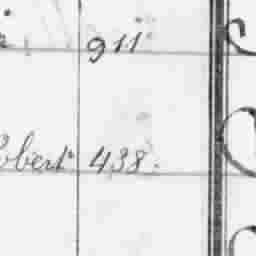 911
obert 438.